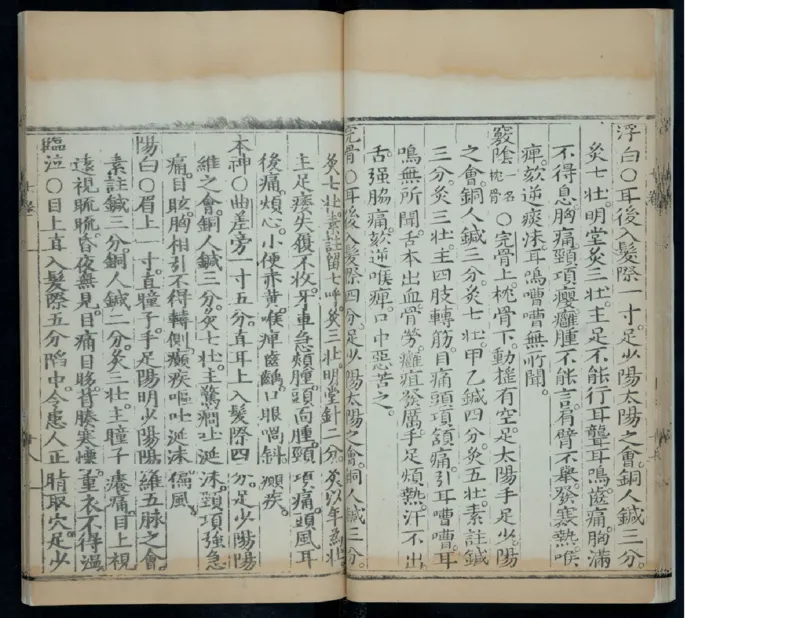 浮白○耳後入髮際一寸。足少陽太陽之會。銅人鍼三分。
灸七壯。明堂灸三壯。主足不能行。耳聾耳鳴。齒痛。胸滿
不得息。胸痛。頸項癭。癰腫不能言。肩臂不舉。發寒熱。喉
痺。欬逆痰沫。耳鳴嘈嘈無所聞。
竅陰一名枕骨○完骨上。枕骨下。動搖有空。足太陽手足少陽
之會。銅人鍼三分。灸七壯。甲乙鍼四分。灸五壯。素註鍼
三分。灸三壯。主四肢轉筋。目痛。頭項頷痛。引耳嘈嘈。耳
鳴無所聞。舌本出血。骨勞。癰疽發厲。手足煩熱。汗不出
舌强脇痛。欬逆喉痺。口中惡苦之。
完骨○耳後入髮際四分。足少陽太陽之會。銅人鍼三分。
灸七壯。素註留七呼。灸三壯。明堂針二分。灸以年為壯
主足痿失履不收。牙車急。頰腫。頭面腫。頸項痛。頭風耳
後痛。煩心。小便赤黃。喉痺齒齲。口眼喎斜。癲疾。
本神○曲差旁一寸五分。直耳上入髮際四分。足少陽陽
維之會。銅人鍼三分。灸七壯。主驚癇吐涎沫。頸項強急
痛。目眩。胸相引不得轉側。癲疾嘔吐涎沫。偏風。
陽白○眉上一寸。直瞳子。手足陽明少陽陽維五脉之會。
素註鍼三分。銅人鍼二分。灸三壯。主瞳子癢痛。目上視
遠視䀮䀮。昏夜無見。目痛目眵。背腠寒慄。重衣不得溫。
臨泣○目上直入髮際五分陷中。令患人正睛取穴。足少